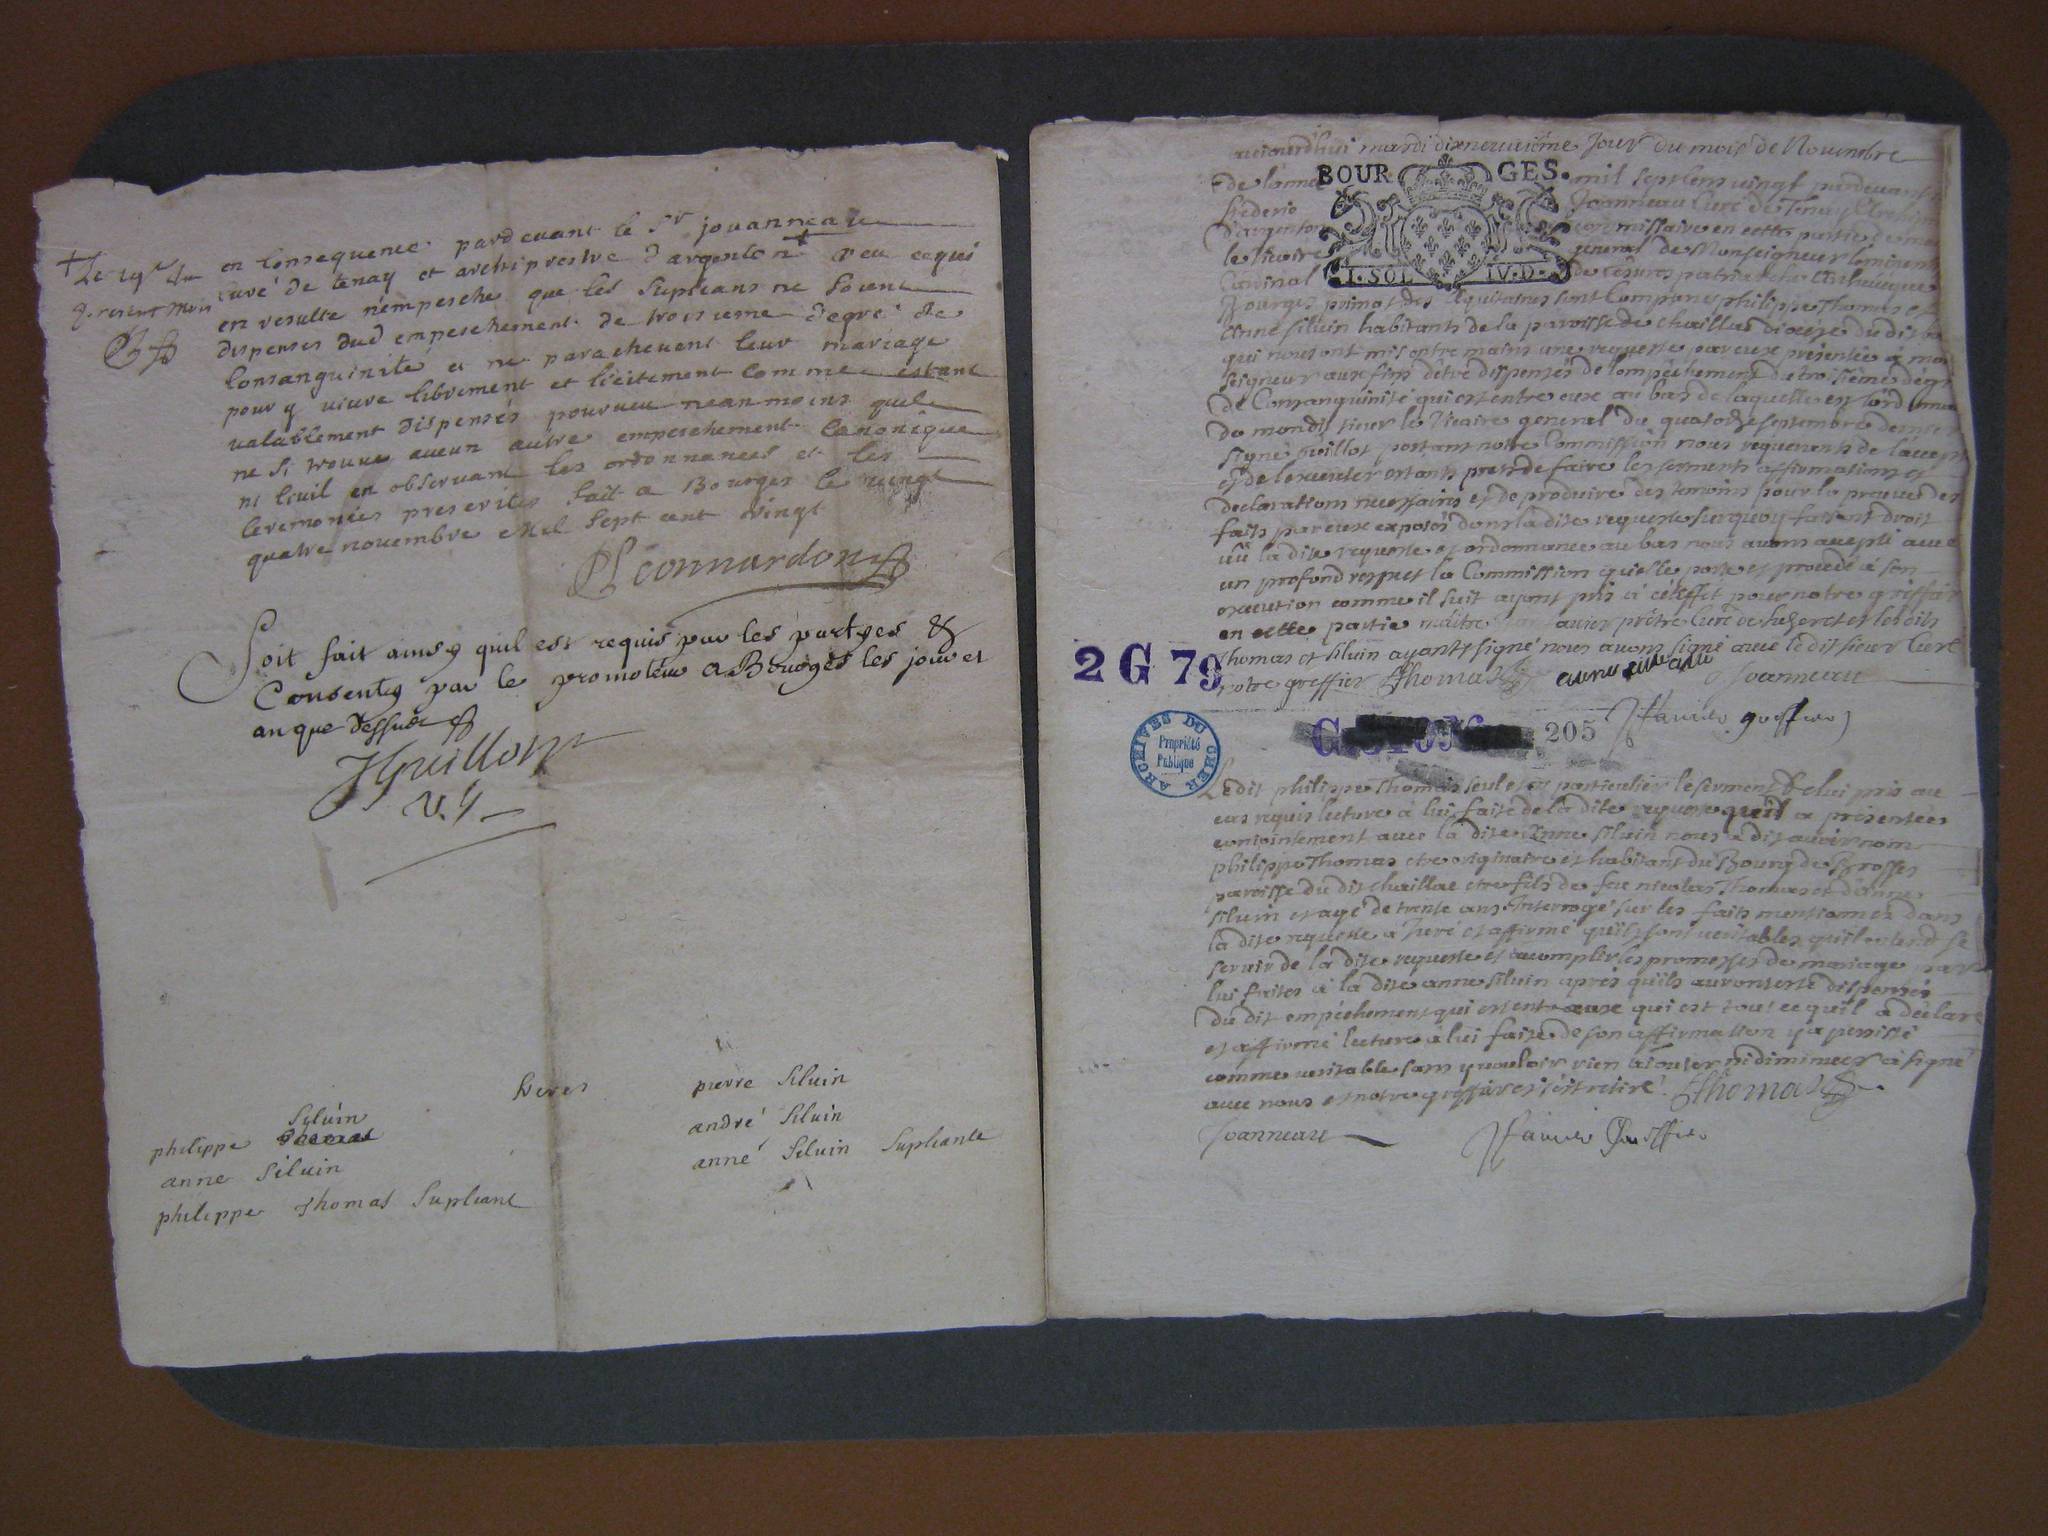 en consequence pardevant le Sr jouanneau
curé de tenay et archiprestre d'argenton + veu cequi
+ Le 19e du
present mois
en resulte n'empesche que les Suplians ne Soient
dispenses dud empeschement de troisieme degré de
Consanguinité et ne parachevent leur mariage
pour y vivre librement et licitement comme estant
valablement dispensés pourveu neanmoins quil
ne Si trouve aucun autre empeschement Canonique
ni Civil en observant les ordonnances et les
Ceremonies prescrites fait a Bourges le vingt
quatre novembre Mil Sept cent vingt
PLeonnardon
Soit fait ainsy quil est requis par les partyes &
Consenty par le promoteur a Bourges les jour et
an que dessus
JGuillot
V. g
freres
philippe Silvin
pierre Silvin
anne Silvin
andré Silvin
philippe Thomas Supliant
anne Silvin Supliante
aujourd'huy mardi dixneuvieme Jour du mois de Novembre
BOUR GES.
I. SOL. IV. D.
de l'année mil sept cens vingt pardevant
Frederic Joanneau Curé de Tenay Archip
d'argenton commissaire en cette partie de
le vicaire general de Monseigneur l'eminent
Cardinal de Gesvres patriarche Archeveque
Bourges primat des Aquitaines sont Comparus philippe Thomas et
Anne silvin habitants de la paroisse de Chaillac diocèse dudit
qui nous ont mis entre mains une requeste par eux présentée à mon
seigneur aux fins detre dispensés de l'empêchement de troisième dégré
de Consanguinité qui est entre eux au bas de laquelle est l'ordonnance
de mondit sieur le Vicaire general du quatorze septembre dernier
signé Guillot portant notre Commission nous requerants de l'accepter
et de l'executer estants prests de faire les serments affirmations et
declarations necessaires et de produire des temoins pour la preuve des
faits par eux exposés dans la dite requeste surquoy faisant droit
vû la dite requeste et ordonnance au bas nous avons accepté avec
un profond respect la Commission quelle porte et procedé à son
execution comme il suit ayant pris à cet effet pour notre greffier
en cette partie maitre prêtre Curé de et lesdits
Thomas et silvin ayants signé nous avons signé avec le dit sieur Curé
notre greffier Thomas Joanneau
2 G 79
205
greffier
ARCHIVES DU CHER
Propriété
Publique
Ledit philippe Thomas seul et en particulier le serment de lui pris au
cas requis lecture à lui faite de la dite requeste qu'il a présentée
conjointement avec la dite Anne silvin nous a dit avoir nom
philippe Thomas etre originaire et habitant du Bourg de Brosses
paroisse du dit Chaillac etre fils de feu nicolas Thomas et d'anne
silvin et agé de trente ans Interrogé sur les faits mentionnés dans
la dite requeste a Juré et affirmé qu'ils sont veritables quil entend se
servir de la dite requeste et accomplir les promesses de mariage par
lui faites à la dite anne silvin après qu'ils auront esté dispensés
du dit empêchement qui est entr eux qui est tout ce quil a déclaré
et affirmé lecture à lui faite de son affirmation y a persisté
comme veritable sans y vouloir rien ajouter ni diminuer a signé
avec nous et notre greffier et s'est retiré. Thomas
Joanneau
Greffier